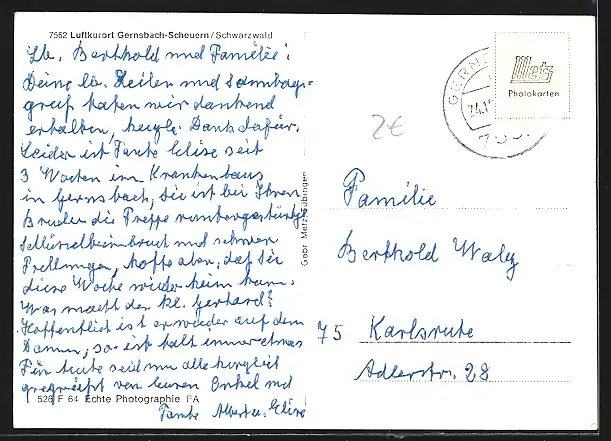 7562 Luftkurort Gernsbach-Scheuern/Schwarzwald
Lb. Berthold und Familie!
Deine lb. Zeilen und Sonntags-
gruß haben wir dankend
erhalten, herzl. Dank dafür.
Leider ist Tante Elise seit
3 Wochen im Krankenhaus
in Gernsbach, Sie ist bei Ihrem
Bruder die Treppe runtergestürzt
Schlüsselbeinbruch und schwere
Prellungen, hoffe aber, daß sie
diese Woche wieder heim kann.
Was macht der kl. Gerhard?
Hoffentlich ist er wieder auf dem
Damm, so ist halt immer etwas
Für heute seid nun alle herzlich
gegrüßt von Euren Onkel und
Tante Albert u. Elise
526 F 64 Echte Photographie FA
Gebr. Metz Tübingen
Metz
Photokarten
2€
Familie
Berthold Waly
75 Karlsruhe
Adlerstr. 28